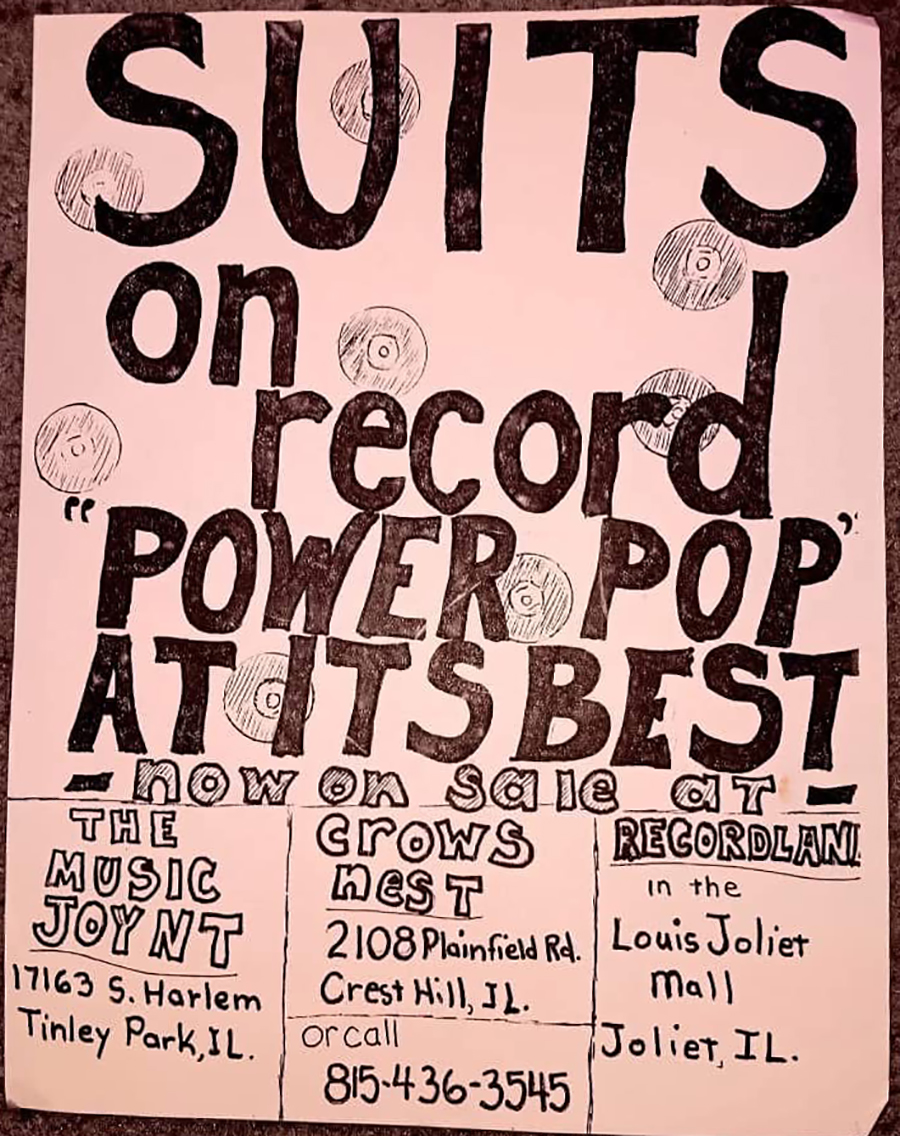 SUITS
on
record
"POWER POP"
AT ITS BEST
- now on sale at -
THE
MUSIC
JOYNT
17163 S. Harlem
Tinley Park, IL.
crows
nest
2108 Plainfield Rd.
Crest Hill, IL.
or call
815-436-3545
RECORDLAND
in the
Louis Joliet
Mall
Joliet, IL.